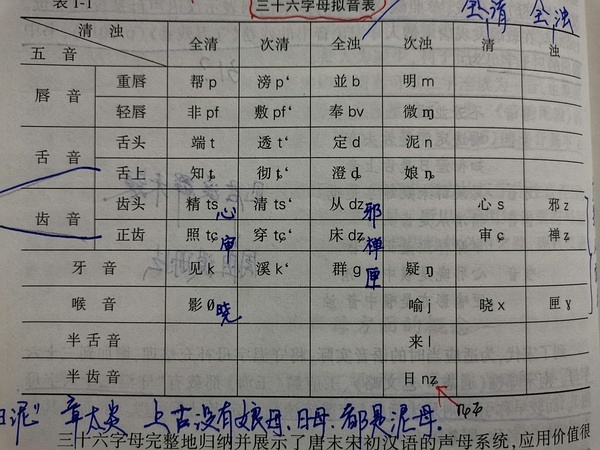 表 1-1 三十六字母拟音表 全清 全浊
清浊 全清 次清 全浊 次浊 清 浊
五音
唇音 重唇 帮 p 滂 p‘ 並 b 明 m
轻唇 非 pf 敷 pf‘ 奉 bv 微 ɱ
舌音 舌头 端 t 透 t‘ 定 d 泥 n
舌上 知 ȶ 彻 ȶ‘ 澄 ȡ 娘 ȵ
齿音 齿头 精 ts 心 清 ts‘ 从 dz 邪 心 s 邪 z
正齿 照 tɕ 审 穿 tɕ‘ 床 dʑ 禅 审 ɕ 禅 ʑ
牙音 见 k 溪 k‘ 群 g 匣 疑 ŋ
喉音 影 ∅ 晓 喻 j 晓 x 匣 ɣ
半舌音 来 l
半齿音 日 nʑ
日泥” 章太炎 上古没有娘母、日母,都是泥母.
三十六字母完整地归纳并展示了唐末宋初汉语的声母系统,应用价值很